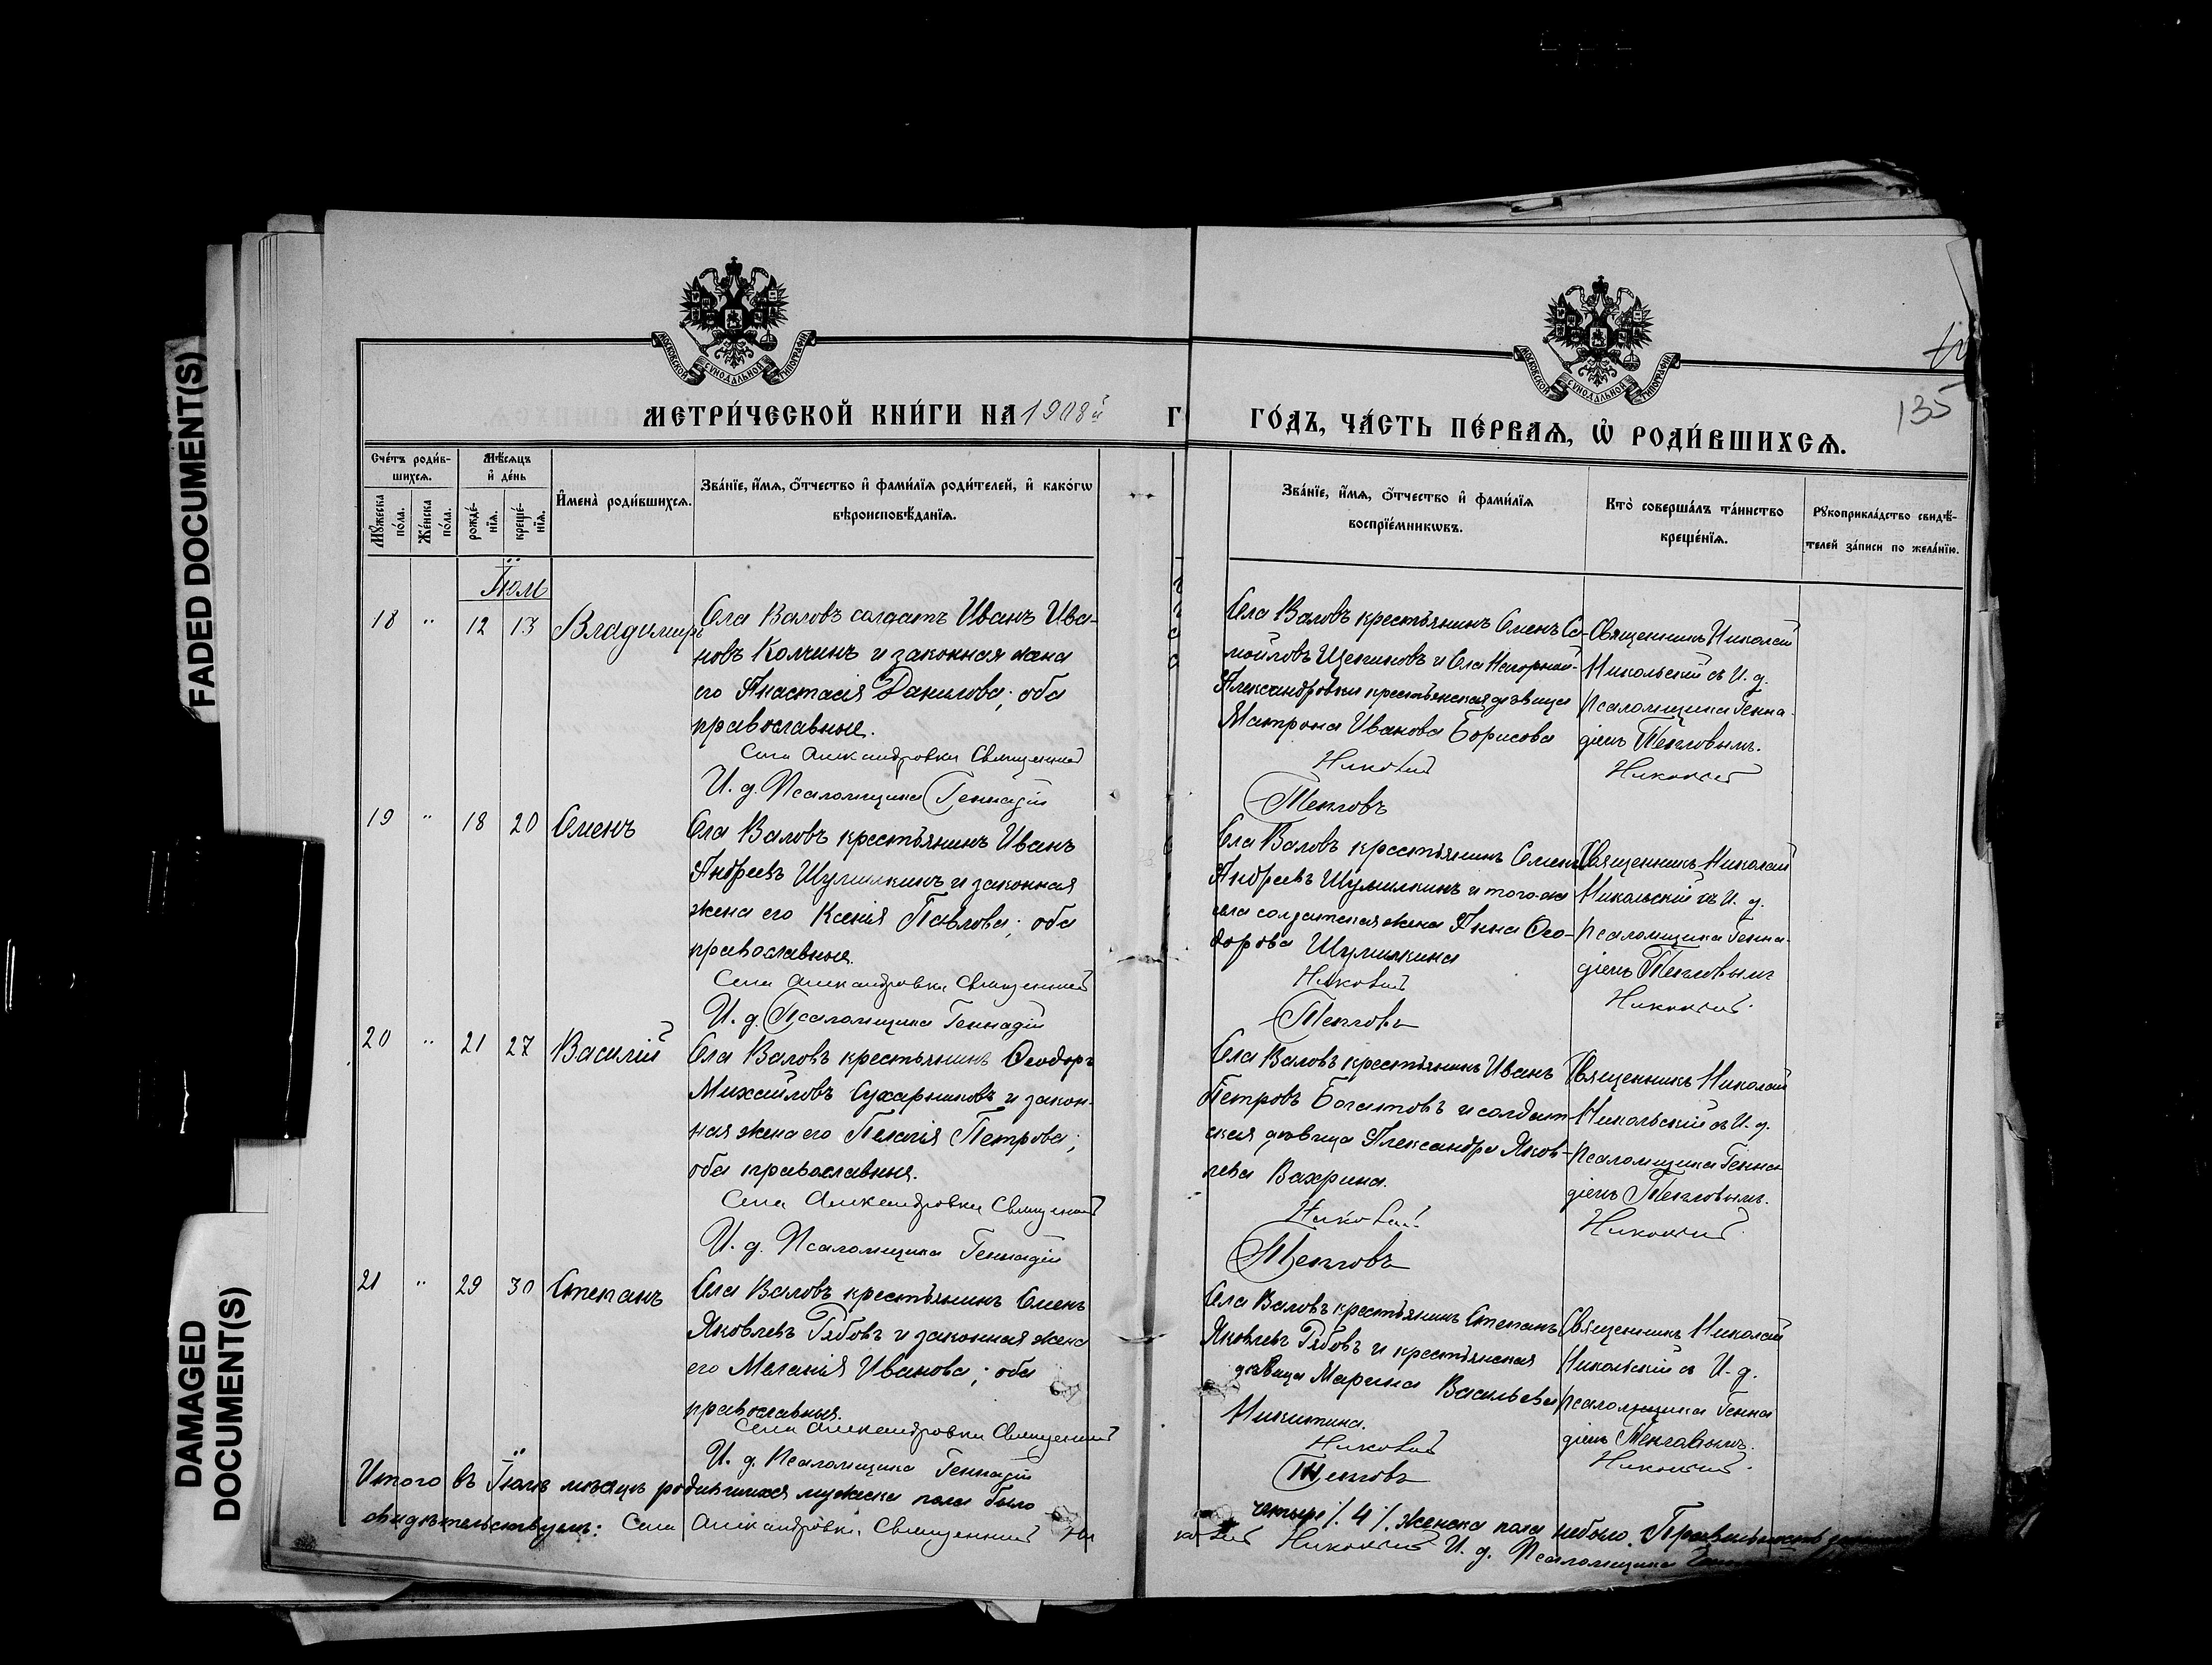 FADED DOCUMENT(S)
DAMAGED
DOCUMENT(S)
МОСКОВСКОЙ СУНОДАЛЬНОЙ ТИПОГРАФІИ
МОСКОВСКОЙ СУНОДАЛЬНОЙ ТИПОГРАФІИ
135
МЕТРИ́ЧЕСКОЙ КНИ́ГИ НА 1908й
ГО́ДЪ, ЧА́СТЬ ПЕ́РВАѦ, Ѡ҆ РОДИ́ВШИХСѦ.
Сче́тъ роди́в-
шихсѧ.
Мꙋжеска по́ла.
Же́нска по́ла.
Мѣ́сѧцъ
и҆ де́нь
рожде́-
нїѧ.
креще́-
нїѧ.
И҆мена̀ роди́вшихсѧ.
Зва́нїе, и҆́мѧ, ѻ҆́тчество и҆ фами́лїѧ роди́телей, и҆ како́гѡ
вѣроисповѣ́данїѧ.
Зва́нїе, и҆́мѧ, ѻ҆́тчество и҆ фами́лїѧ
воспрїе́мникѡвъ.
Кто̀ соверша́лъ та́инство
креще́нїѧ.
Рꙋкоприкла́дство свидѣ́-
телей за́писи по жела́нїю.
Іюль
18 " 12 13 Владимиръ
Села Валовъ солдатъ Иванъ Ива-
новъ Колчинъ и законная жена
его Анастасія Данилова; оба
православные.
Села Александровки Священникъ
И. д. Псаломщика Геннадій
Села Валовъ крестьянинъ Сменъ Са-
мойловъ Щепиновъ и Села Нагорной-
Александровки крестьянская дѣвица
Матрона Иванова Борисова
Николай
Тепловъ
Священникъ Николай
Никольскій съ И. д.
псаломщика Генна-
діемъ Тепловымъ.
Никольскій
19 " 18 20 Сменъ
Села Валовъ крестьянинъ Иванъ
Андреевъ Шумилкинъ и законная
жена его Ксенія Павлова; оба
православные.
Села Александровки Священникъ
И. д. Псаломщика Геннадій
Села Валовъ крестьянинъ Сменъ
Андреевъ Шумилкинъ и того-же
села солдатская жена Анна Ѳео-
дорова Шумилкина
Николай
Тепловъ
Священникъ Николай
Никольскій съ И. д.
псаломщика Генна-
діемъ Тепловымъ
Никольскій.
20 " 21 27 Василій
Села Валовъ крестьянинъ Ѳеодоръ
Михайловъ Сухарниковъ и закон-
ная жена его Пелагія Петрова;
оба православные.
Села Александровки Священникъ
И. д. Псаломщика Геннадій
Села Валовъ крестьянинъ Иванъ
Петровъ Богатовъ и солдат-
ская дѣвица Александра Яков-
лева Вахрина.
Николай
Тепловъ
Священникъ Николай
Никольскій съ И. д.
псаломщика Генна
діемъ Тепловымъ.
Никольскій.
21 " 29 30 Степанъ
Села Валовъ крестьянинъ Сменъ
Яковлевъ Рябовъ и законная жена
его Меланія Иванова; оба
православные.
Села Александровки Священникъ
И. д. Псаломщика Геннадій
Села Валовъ крестьянинъ Степанъ
Яковлевъ Рябовъ и крестьянская
дѣвица Марина Васильева
Никитина.
Николай
Тепловъ
Священникъ Николай
Никольскій съ И. д.
псаломщика Генна
діемъ Тепловымъ.
Никольскій.
Итого въ Іюлѣ мѣсяцѣ родившихся мужска пола было
четыре /. 4 /. Женска пола небыло. Правильность
свидѣтельствуемъ: Села Александровки Священникъ Ни
колай Никольскій И. д. Псаломщика